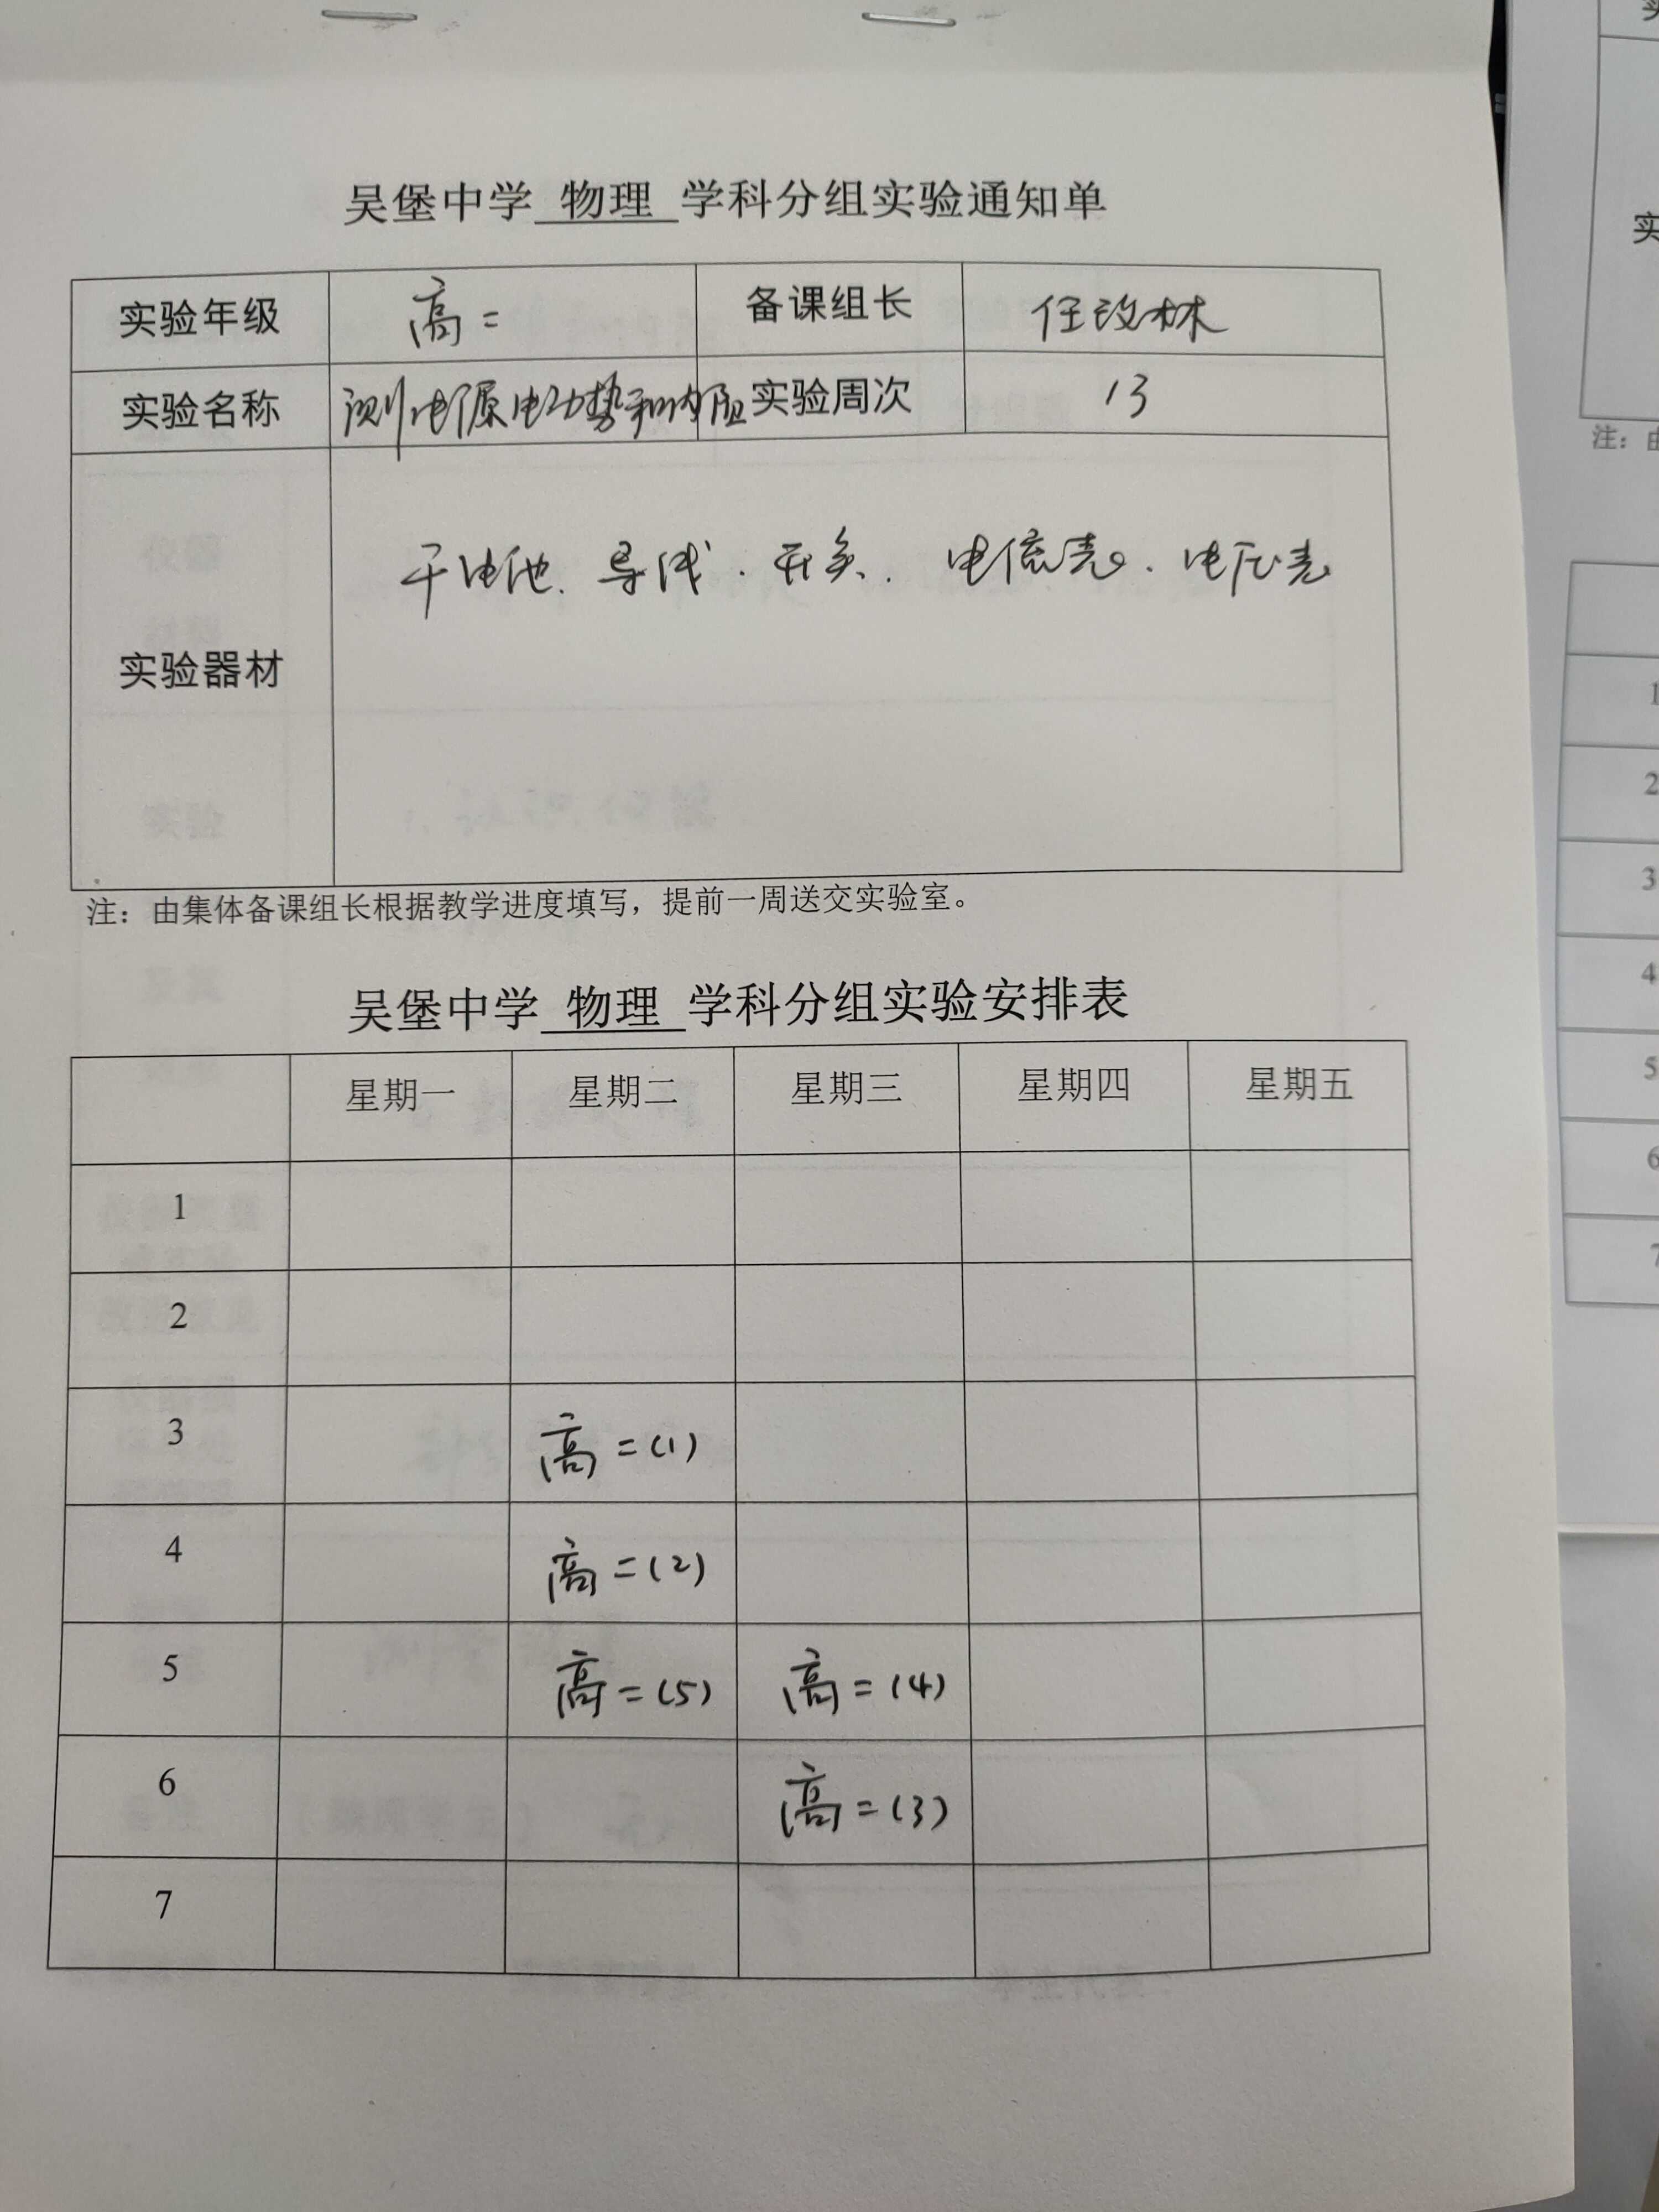 吴堡中学 物理 学科分组实验通知单
实验年级 高二 备课组长 任改林
实验名称 测电源电动势和内阻 实验周次 13
实验器材 干电池、导线、开关、电流表、电压表
注：由集体备课组长根据教学进度填写，提前一周送交实验室。
吴堡中学 物理 学科分组实验安排表
星期一 星期二 星期三 星期四 星期五
1
2
3 高二(1)
4 高二(2)
5 高二(5) 高二(4)
6 高二(3)
7
实
注：由
1
2
3
4
5
6
7